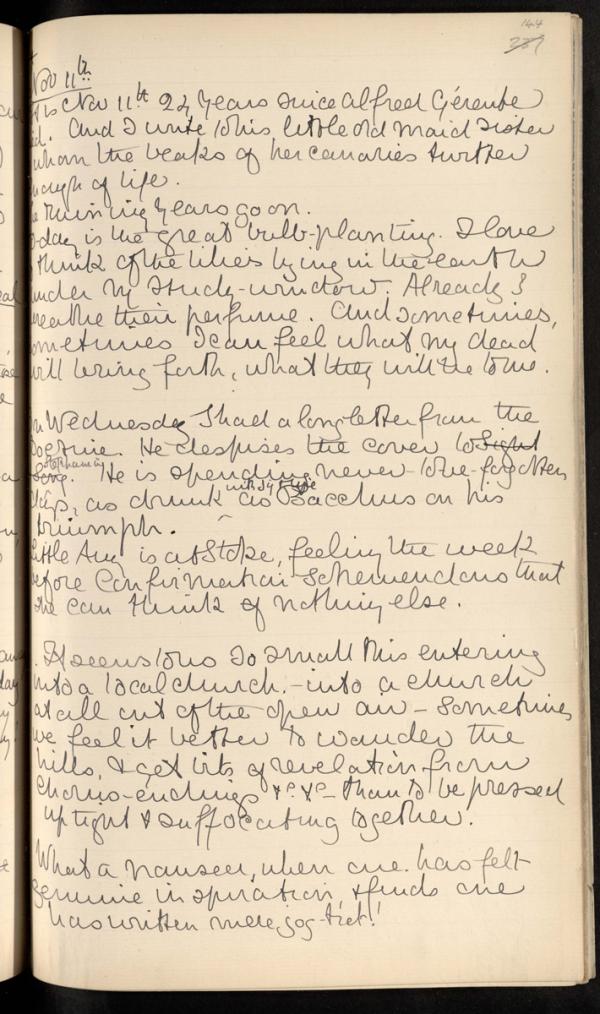 144
Nov 11th
is Nov 11th 24 years since Alfred Gérente
And I write to his little old maid sister
whom the beaks of her canaries twitter
enough of life.
years go on.
is the great bulb-planting. I love
think of the lilies lying in the earth
under my study-window. Already I
breathe their perfume. And sometimes,
sometimes I can feel what my dead
will bring forth, what they will be to us.
On Wednesday I had a long letter from the
Doctrine. He despises the cover to Sight
Song. He is spending never-to-be-forgotten
days, as drunk as Bacchus on his
triumph.
Little Amy is at Stoke, feeling the week
before Confirmation so tremendous that
she can think of nothing else.
It seems to us so small this entering
into a local church, – into a church
at all out of the open air – sometimes
we feel it better to wander the
hills, & get bits of revelation from
chorus-endings &c. &c – than to be pressed
up tight & suffocating together.
What a nausea, when one has felt
genuine inspiration, & finds one
has written mere jog-trot!